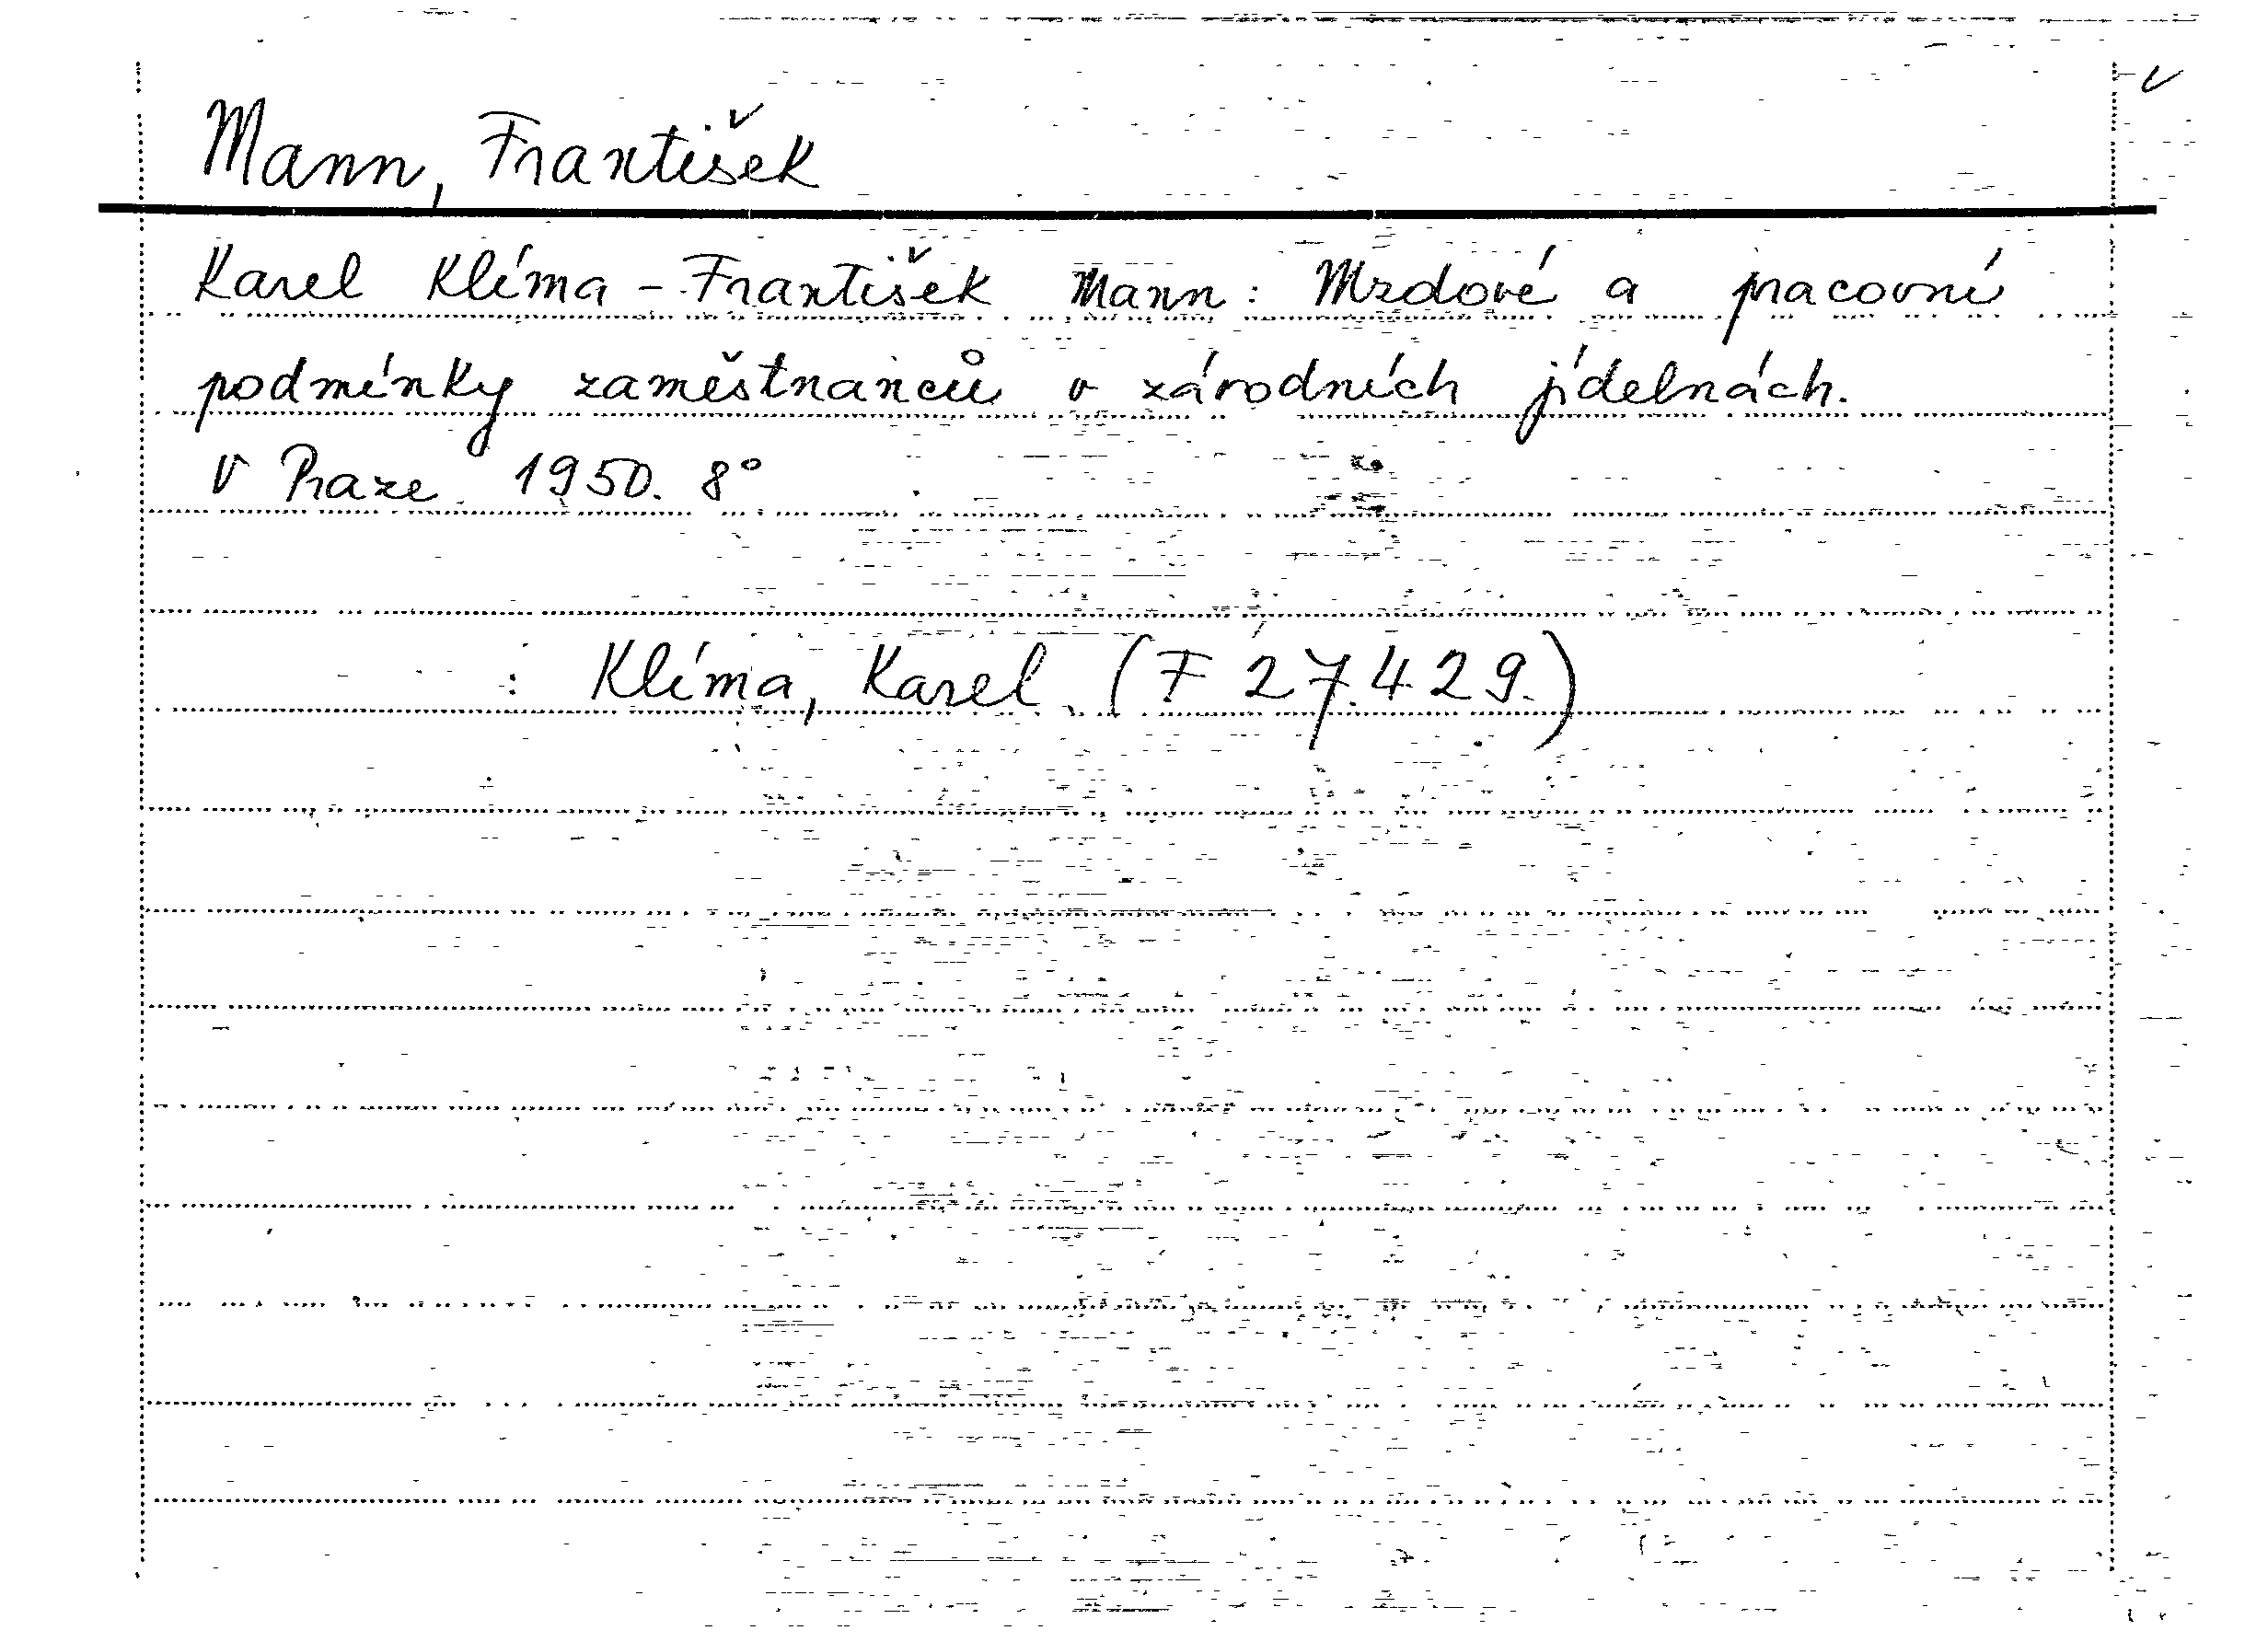 Mann, František
Karel Klíma - František Mann: Mzdové a pracovní
podmínky zaměstnanců v závodních jídelnách.
V Praze 1950. 8°
: Klíma, Karel (F 27.429.)